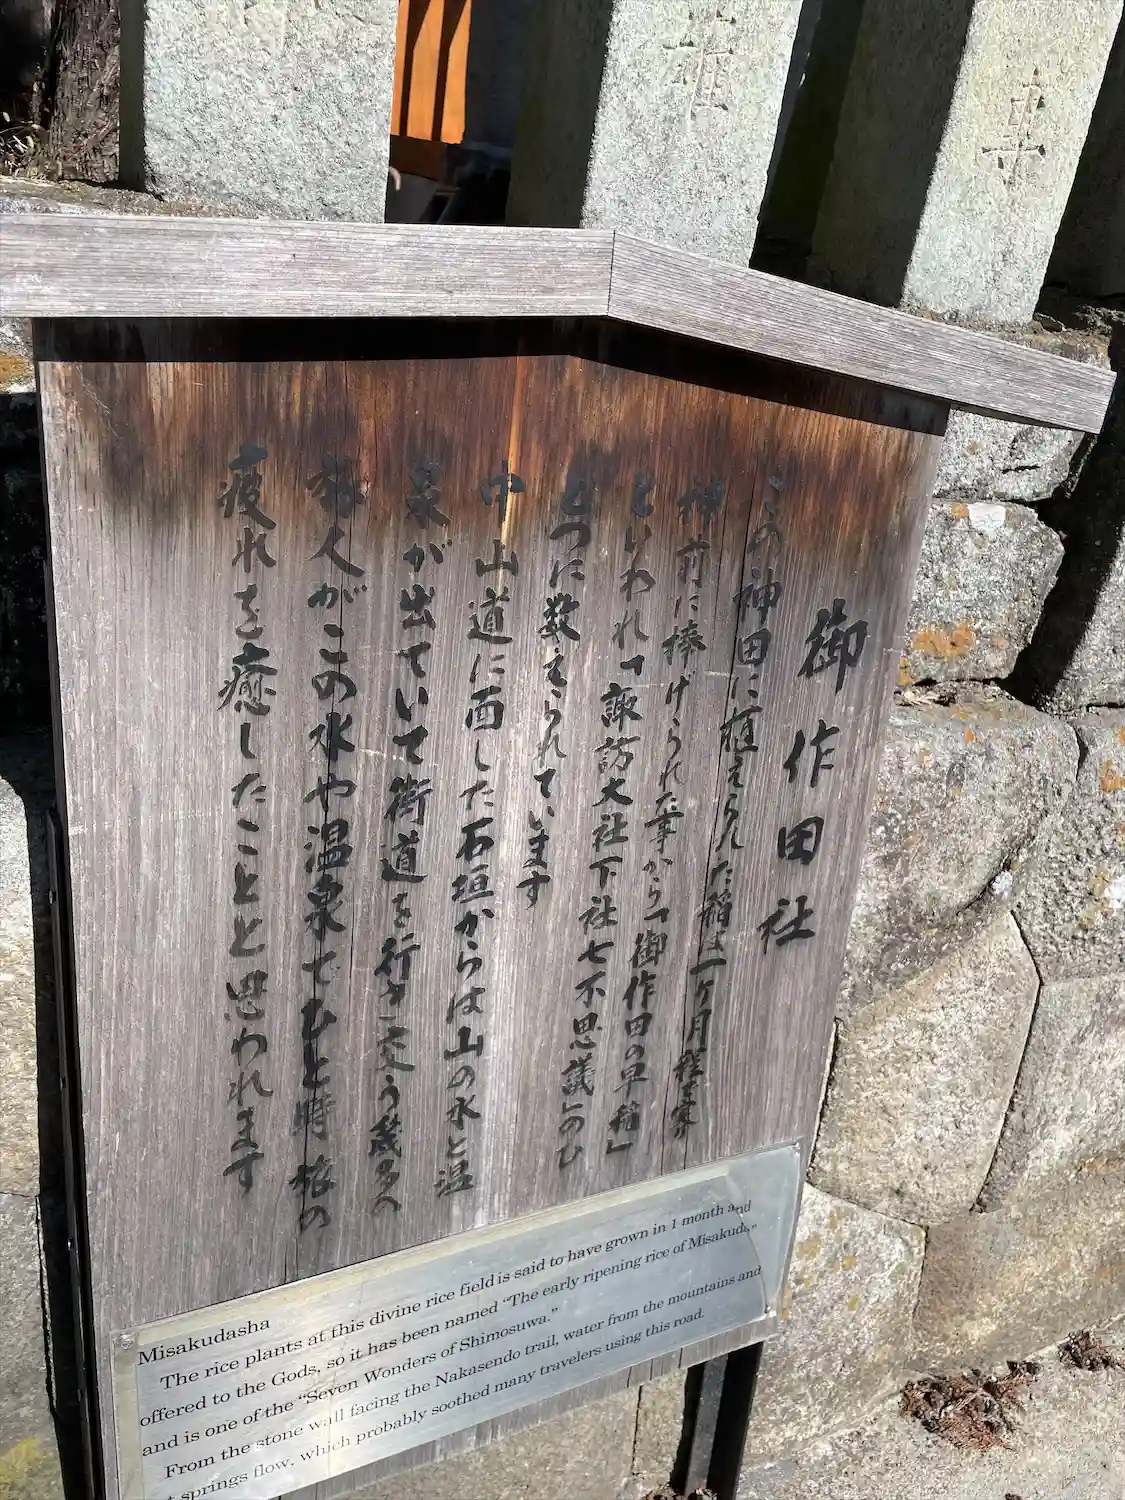 御作田社
この神田に植えられた稲は一ヶ月程で実り
神前に捧げられた事から「御作田の早稲」
といわれて諏訪大社下社七不思議のひ
とつに数えられています
中山道に面した石垣からは山の水と温
泉が出ていて街道を行き交う幾多の
旅人がこの水や温泉でひと時旅の
疲れを癒したことと思われます
Misakudasha
The rice plants at this divine rice field is said to have grown in 1 month and
offered to the Gods, so it has been named "The early ripening rice of Misakuda,"
and is one of the "Seven Wonders of Shimosuwa."
From the stone wall facing the Nakasendo trail, water from the mountains and
springs flow, which probably soothed many travelers using this road.